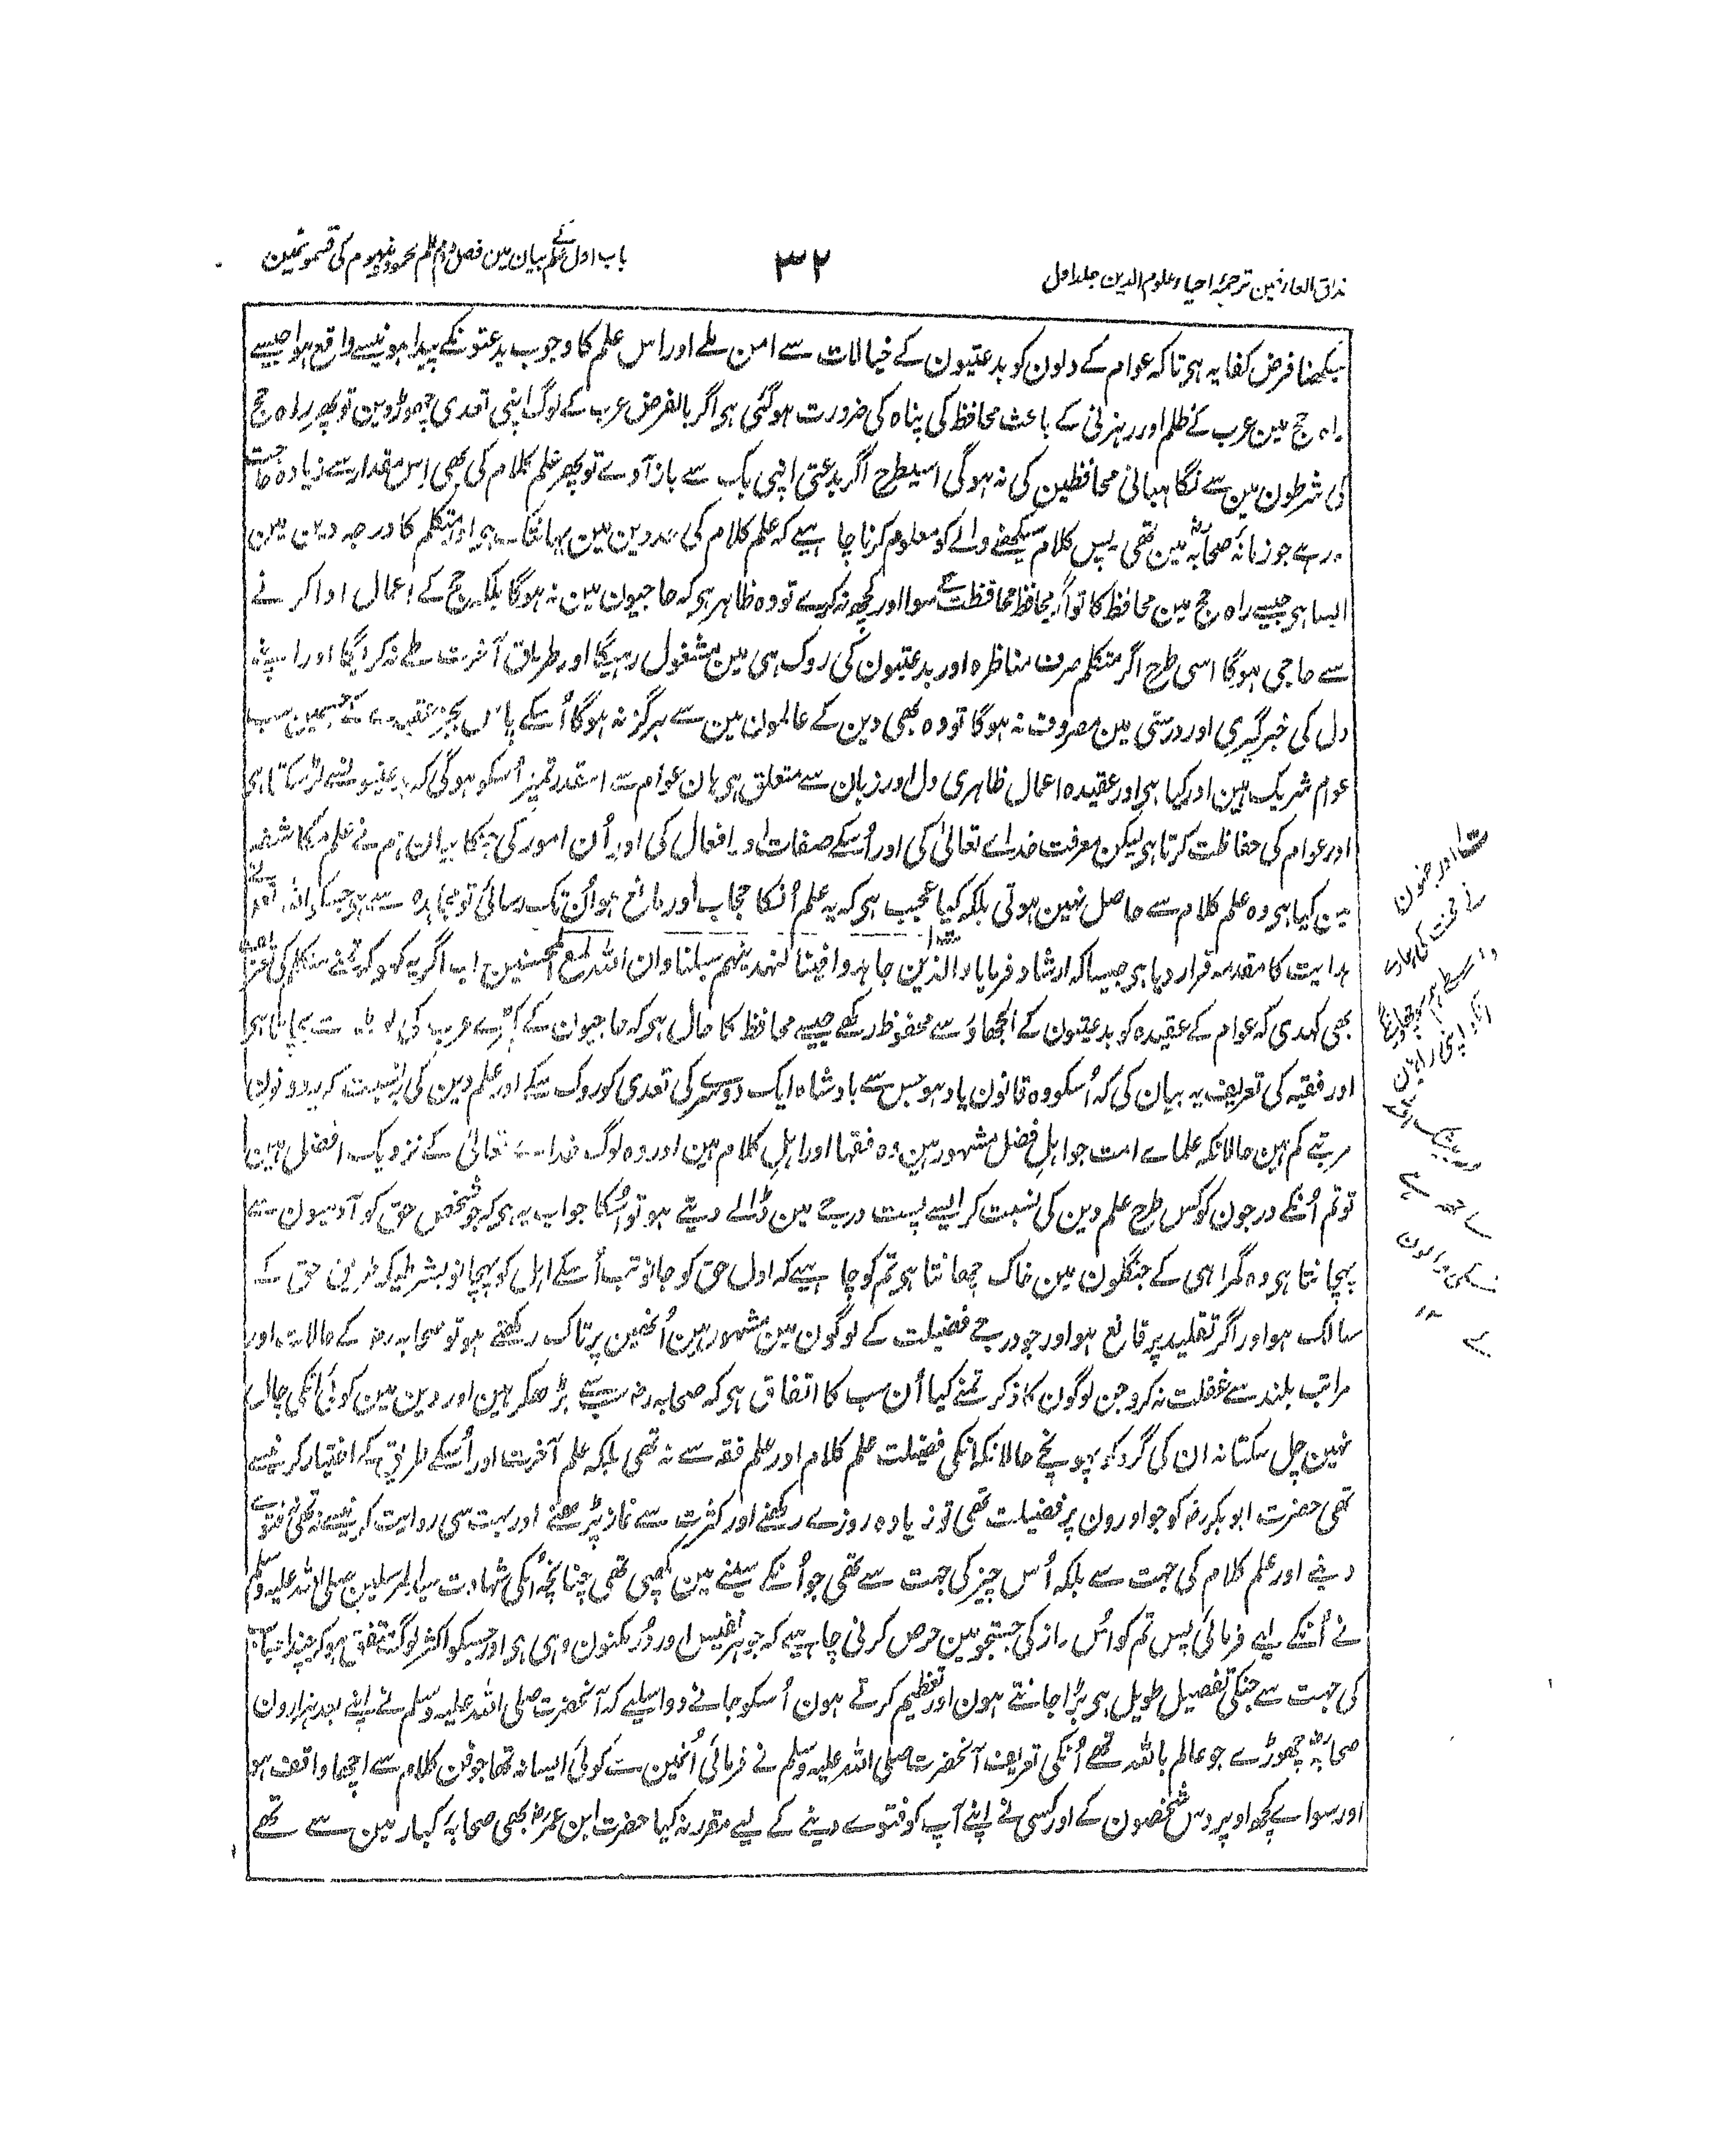 مذاق العارفین ترجمۂ احیاء علوم الدین جلد اول
۳۲
باب اول علم کے بیان مین فصل دوم علم محمود و مذموم کی قسمونمین
سیکھنا فرض کفایہ ہی تاکہ عوام کے دلون کو بدعتیون کے خیالات سے امن ملے اور اس علم کا وجوب بدعتونکے پیدا ہونیسے واقع ہوا جیسے
راہ حج مین عرب کے ظلم اور رہزنی کے باعث محافظ کی پناہ کی ضرورت ہوگئی ہی اگر بالفرض عرب کے لوگ اپنی تعدی چھوڑ دین تو پھر راہ حج
کی شرطون مین سے نگاہبانی محافظین کی نہ ہوگی اسیطرح اگر بدعتی اپنی بک سے باز آوے تو پھر علم کلام کی بھی اس مقدار سے زیادہ حاجت
نہ رہے جو زمانۂ صحابہؓ مین تھی پس کلام سیکھنے والے کو معلوم کرنا چاہیے کہ علم کلام کی حد دین مین یہانتک ہی اور متکلم کا درجہ دین مین
ایسا ہی جیسے راہ حج مین محافظ کا تو اگر محافظ محافظت کے سوا اور کچھ نہ کرے تو وہ ظاہر ہی کہ حاجیون مین نہ ہوگا بلکہ حج کے اعمال ادا کرنے
سے حاجی ہوگا اسی طرح اگر متکلم صرف مناظرہ اور بدعتیون کی روک ہی مین مشغول رہیگا اور طریق آخرت طے نہ کریگا اور اپنے
دل کی خبرگیری اور درستی مین مصروف نہ ہوگا تو وہ بھی دین کے عالمون مین سے ہرگز نہ ہوگا اُسکے پاس بجز عقیدے کے جسمین سب
عوام شریک ہین اور کیا ہی اور عقیدہ اعمال ظاہری دل اور زبان سے متعلق ہی ہان عوام سے اسقدر تمیز اُسکو ہوگی کہ بدعتیونسے لڑ سکتا ہی
اور عوام کی حفاظت کرتا ہی لیکن معرفت خداے تعالیٰ کی اور اُسکے صفات اور افعال کی اور اُن امور کی جنکا بیان ہم نے علم مکاشفہ
مین کیا ہی وہ علم کلام سے حاصل نہین ہوتی بلکہ کیا عجیب ہی کہ یہ علم اُنکا حجاب اور مانع ہو اُن تک رسائی تو مجاہدہ سے ہی جسکو اللہ تعالیٰ نے
ہدایت کا مقدمہ قرار دیا ہی جیسا کہ ارشاد فرمایا والذین جاہدوا فینا لنہدینہم سبلنا وان اللہ لمع المحسنین اب اگر یہ کہو کہ تمنے متکلم کی تعریف
بھی کہدی کہ عوام کے عقیدہ کو بدعتیون کے الجھاؤ سے محفوظ رکھے جیسے محافظ کا حال ہی کہ حاجیون کے کپڑے عرب کی لوٹ سے بچاتا ہی
اور فقیہ کی تعریف یہ بیان کی کہ اُسکو وہ قانون یاد ہو جس سے بادشاہ ایک دوسرے کی تعدی کو روک سکے اور علم دین کی بنسبت کہ یہ دونون
مرتبے کم ہین حالانکہ علماے امت جو اہل فضل مشہور ہین وہ فقہا اور اہل کلام ہین اور وہ لوگ خداے تعالیٰ کے نزدیک افضل ہین
تو تم اُنکے درجون کو کس طرح علم دین کی نسبت کر ایسے پست درجے مین ڈالے دیتے ہو تو اُسکا جواب یہ ہی کہ جو شخص حق کو آدمیون سے
پہچانتا ہی وہ گمراہی کے جنگلون مین خاک چھانتا ہی تم کو چاہیے کہ اول حق کو جانو تب اُسکے اہل کو پہچانو بشرطیکہ طریق حق کے
سالک ہو اور اگر تقلید پر قانع ہو اور جو درجے فضیلت کے لوگون مین مشہور ہین اُنھین پر تاک رکھتے ہو تو صحابہ رضہ کے حالات اور
مراتب بلند سے غفلت نہ کرو جن لوگون کا ذکر تمنے کیا اُن سب کا اتفاق ہی کہ صحابہ رضہ سب سے بڑھکر ہین اور دین مین کوئی اُنکی چال
نہین چل سکتا نہ ان کی گرد کو پہونچے حالانکہ اُنکی فضیلت علم کلام اور علم فقہ سے نہ تھی بلکہ علم آخرت اور اُسکے طریق کے اختیار کرنیسے
تھی حضرت ابوبکر رضہ کو جو اورون پر فضیلت تھی تو زیادہ روزے رکھنے اور کثرت سے نماز پڑھنے اور بہت سی روایت کرنیسے نہ تھی نہ فتوے
دینے اور علم کلام کی جہت سے بلکہ اُس چیز کی جہت سے تھی جو اُنکے سینے مین کھپی تھی چنانچہ اُنکی شہادت سید المرسلین صلی اللہ علیہ وسلم
نے اُنکے لیے فرمائی پس تم کو اُس راز کی جستجو مین حرص کرنی چاہیے کہ جوہر نفیس اور دُرِ مکنون وہی ہی اور جسکو اکثر لوگ متفق ہوکر چند اسباب
کی جہت سے جنکی تفصیل طویل ہی بڑا جانتے ہون اور تعظیم کرتے ہون اُسکو جانے دو اسلیے کہ آنحضرت صلی اللہ علیہ وسلم نے اپنے بعد ہزارون
صحابہؓ چھوڑے جو عالم باللہ تھے اُنکی تعریف آنحضرت صلی اللہ علیہ وسلم نے فرمائی اُنمین سے کوئی ایسا نہ تھا جو فن کلام سے اچھا واقف ہو
اور سواے کچھ اوپر دس شخصون کے اور کسی نے اپنے آپ کو فتوے دینے کے لیے مقرر نہ کیا حضرت ابن عمرؓ بھی صحابۂ کبار مین سے تھے
اور جنہون
نے محنت کی ہمارے
واسطے ہم سوجھاوینگے
انکو اپنی راہین
اور بیشک اللہ
ساتھ ہے
نیکی والون
کے ۱۲